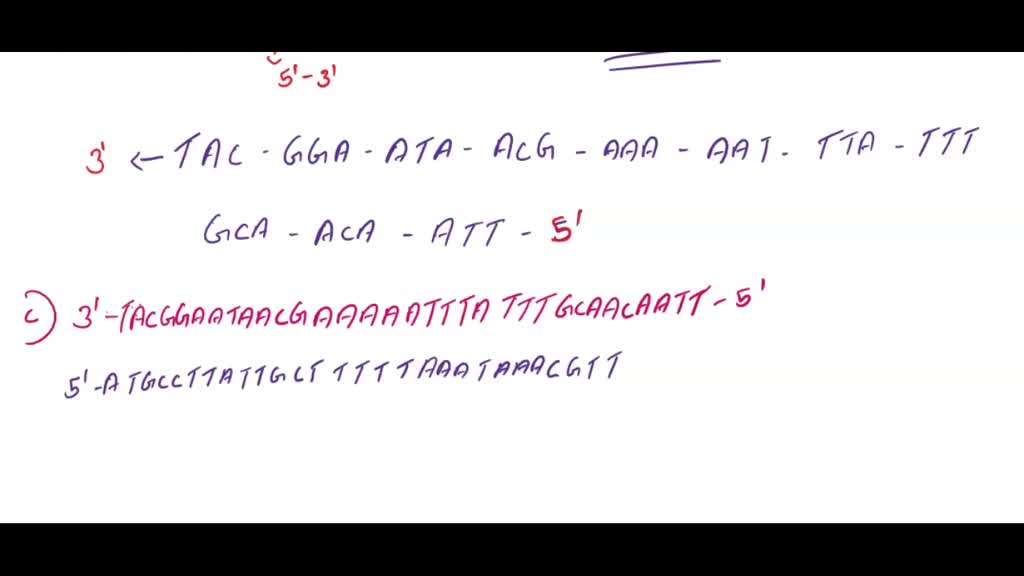 5'-3'
3' ← TAC - GGA - ATA - ACG - AAA - AAT - TTA - TTT
GCA - ACA - ATT - 5'
c) 3'-TACGGAATAACGAAAAATTTATTTGCAACAATT-5'
5'-ATGCCTTATTGCTTTTTAAATAAACGTT